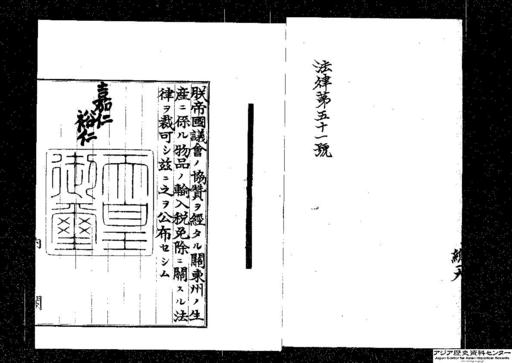 法律第五十一號
朕帝國議會ノ協贊ヲ經タル關東州ノ生
産ニ係ル物品ノ輸入税免除ニ關スル法
律ヲ裁可シ玆ニ之ヲ公布セシム
嘉仁
裕仁
天皇
御璽
内閣
アジア歴史資料センター
Japan Center for Asian Historical Records